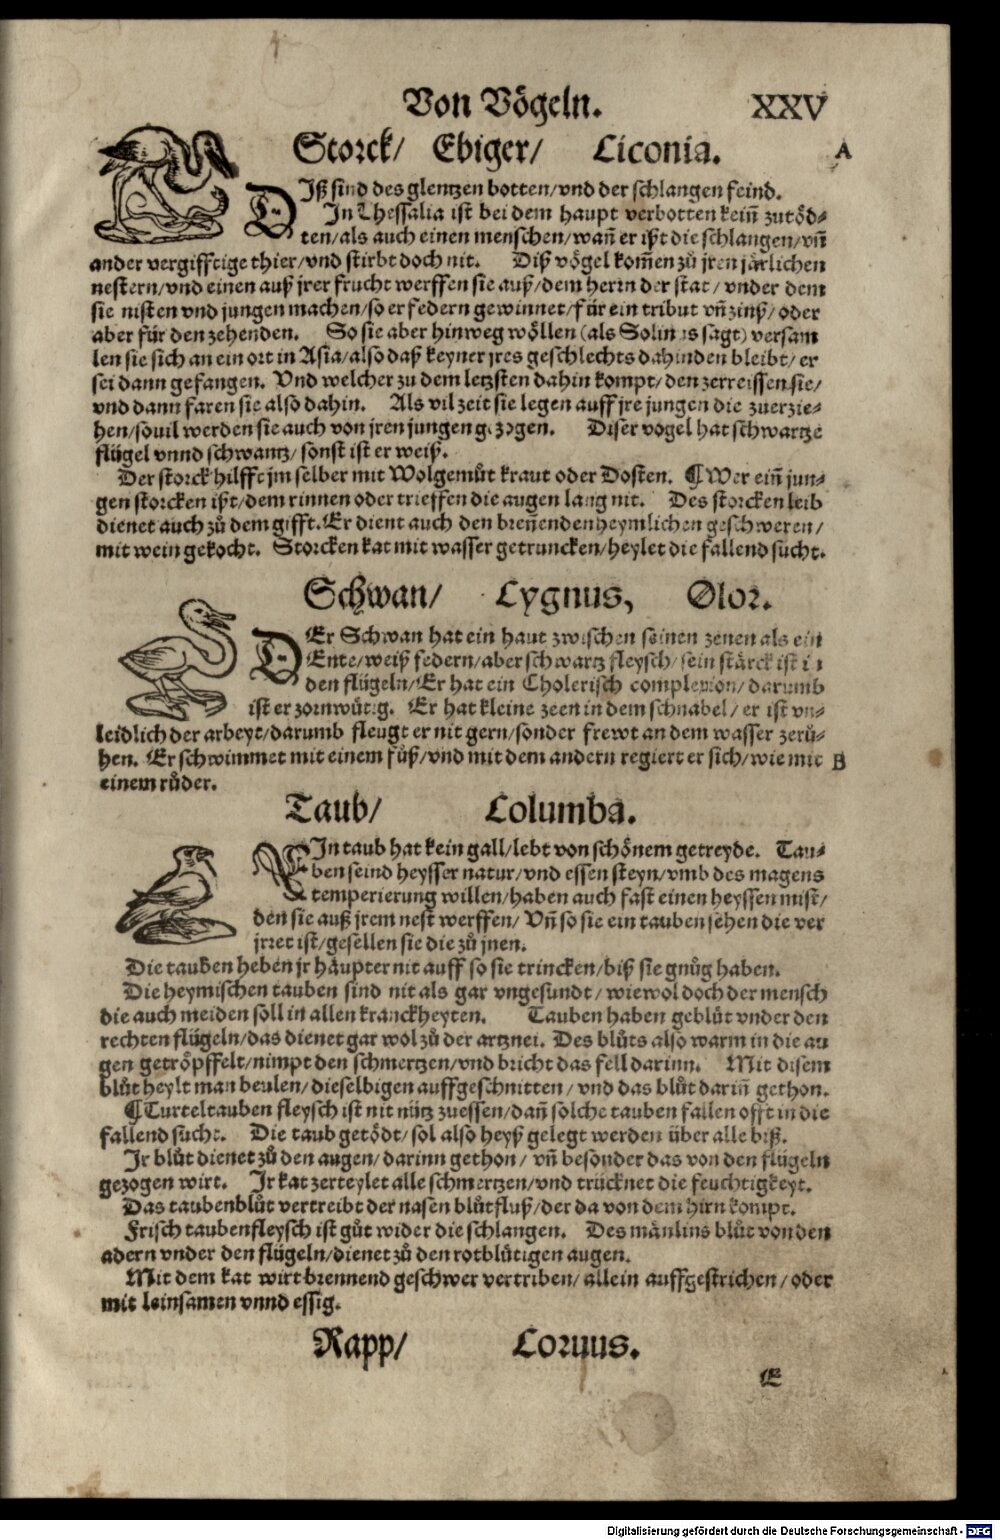 Von Vögeln. XXV
Storck/ Ebiger/ Ciconia. A
DIß sind des glentzen botten/vnd der schlangen feind.
In Thessalia ist bei dem haupt verbotten keiñ zutöd-
ten/als auch einen menschen/wañ er ißt die schlangen/vñ
ander vergifftige thier/vnd stirbt doch nit. Diß vögel kom̃en zů jren järlichen
nestern/vnd einen auß jrer frucht werffen sie auß/dem herrn der stat/ vnder dem
sie nisten vnd jungen machen/so er federn gewinnet/für ein tribut vñ zinß/ oder
aber für den zehenden. So sie aber hinweg wöllen (als Solinus sagt) versam
len sie sich an ein ort in Asia/also daß keyner jres geschlechts dahinden bleibt/ er
sei dann gefangen. Vnd welcher zu dem letzsten dahin kompt/den zerreissen sie/
vnd dann faren sie also dahin. Als vil zeit sie legen auff jre jungen die zuerzie-
hen/souil werden sie auch von jren jungen gezogen. Diser vogel hat schwartze
flügel vnnd schwantz/ sonst ist er weiß.
Der storck hilfft jm selber mit Wolgemůt kraut oder Dosten. ¶ Wer eiñ jun-
gen storcken ißt/dem rinnen oder trieffen die augen lang nit. Des storcken leib
dienet auch zů dem gifft. Er dient auch den breñenden heymlichen geschweren/
mit wein gekocht. Storcken kat mit wasser getruncken/heylet die fallend sucht.
Schwan/ Cygnus, Olor.
DEr Schwan hat ein haut zwischen seinen zenen als ein
Ente/weiß federn/aber schwartz fleysch/sein stärck ist in
den flügeln/Er hat ein Cholerisch complexion/darumb
ist er zornwütig. Er hat kleine zeen in dem schnabel/ er ist vn-
leidlich der arbeyt/darumb fleugt er nit gern/sonder frewt an dem wasser zerů-
hen. Er schwimmet mit einem fůß/vnd mit dem andern regiert er sich/wie mit B
einem růder.
Taub/ Columba.
EIn taub hat kein gall/lebt von schönem getreyde. Tau-
ben seind heysser natur/vnd essen steyn/vmb des magens
temperierung willen/haben auch fast einen heyssen mist/
den sie auß jrem nest werffen/ Vñ so sie ein tauben sehen die ver
jrret ist/gesellen sie die zů jnen.
Die tauben heben jr häupter nit auff so sie trincken/biß sie gnůg haben.
Die heymischen tauben sind nit als gar vngesundt/wiewol doch der mensch
die auch meiden soll in allen kranckheyten. Tauben haben geblůt vnder den
rechten flügeln/das dienet gar wol zů der artznei. Des blůts also warm in die au
gen getröpffelt/nimpt den schmertzen/vnd bricht das fell darinn. Mit disem
blůt heylt man beulen/dieselbigen auffgeschnitten/vnd das blůt dariñ gethon.
¶Turteltauben fleysch ist nit nütz zuessen/dañ solche tauben fallen offt in die
fallend sucht. Die taub getödt/sol also heyß gelegt werden über alle biß.
Jr blůt dienet zů den augen/darinn gethon/ vñ besonder das von den flügeln
gezogen wirt. Jr kat zerteylet alle schmertzen/vnd trücknet die feuchtigkeyt.
Das taubenblůt vertreibt der nasen blůtfluß/der da von dem hirn kompt.
Frisch taubenfleysch ist gůt wider die schlangen. Des mänlins blůt von den
adern vnder den flügeln/dienet zů den rotblůtigen augen.
Mit dem kat wirt brennend geschwer vertriben/ allein auffgestrichen/oder
mit leinsamen vnnd essig.
Rapp/ Coruus.
E
Digitalisierung gefördert durch die Deutsche Forschungsgemeinschaft - DFG